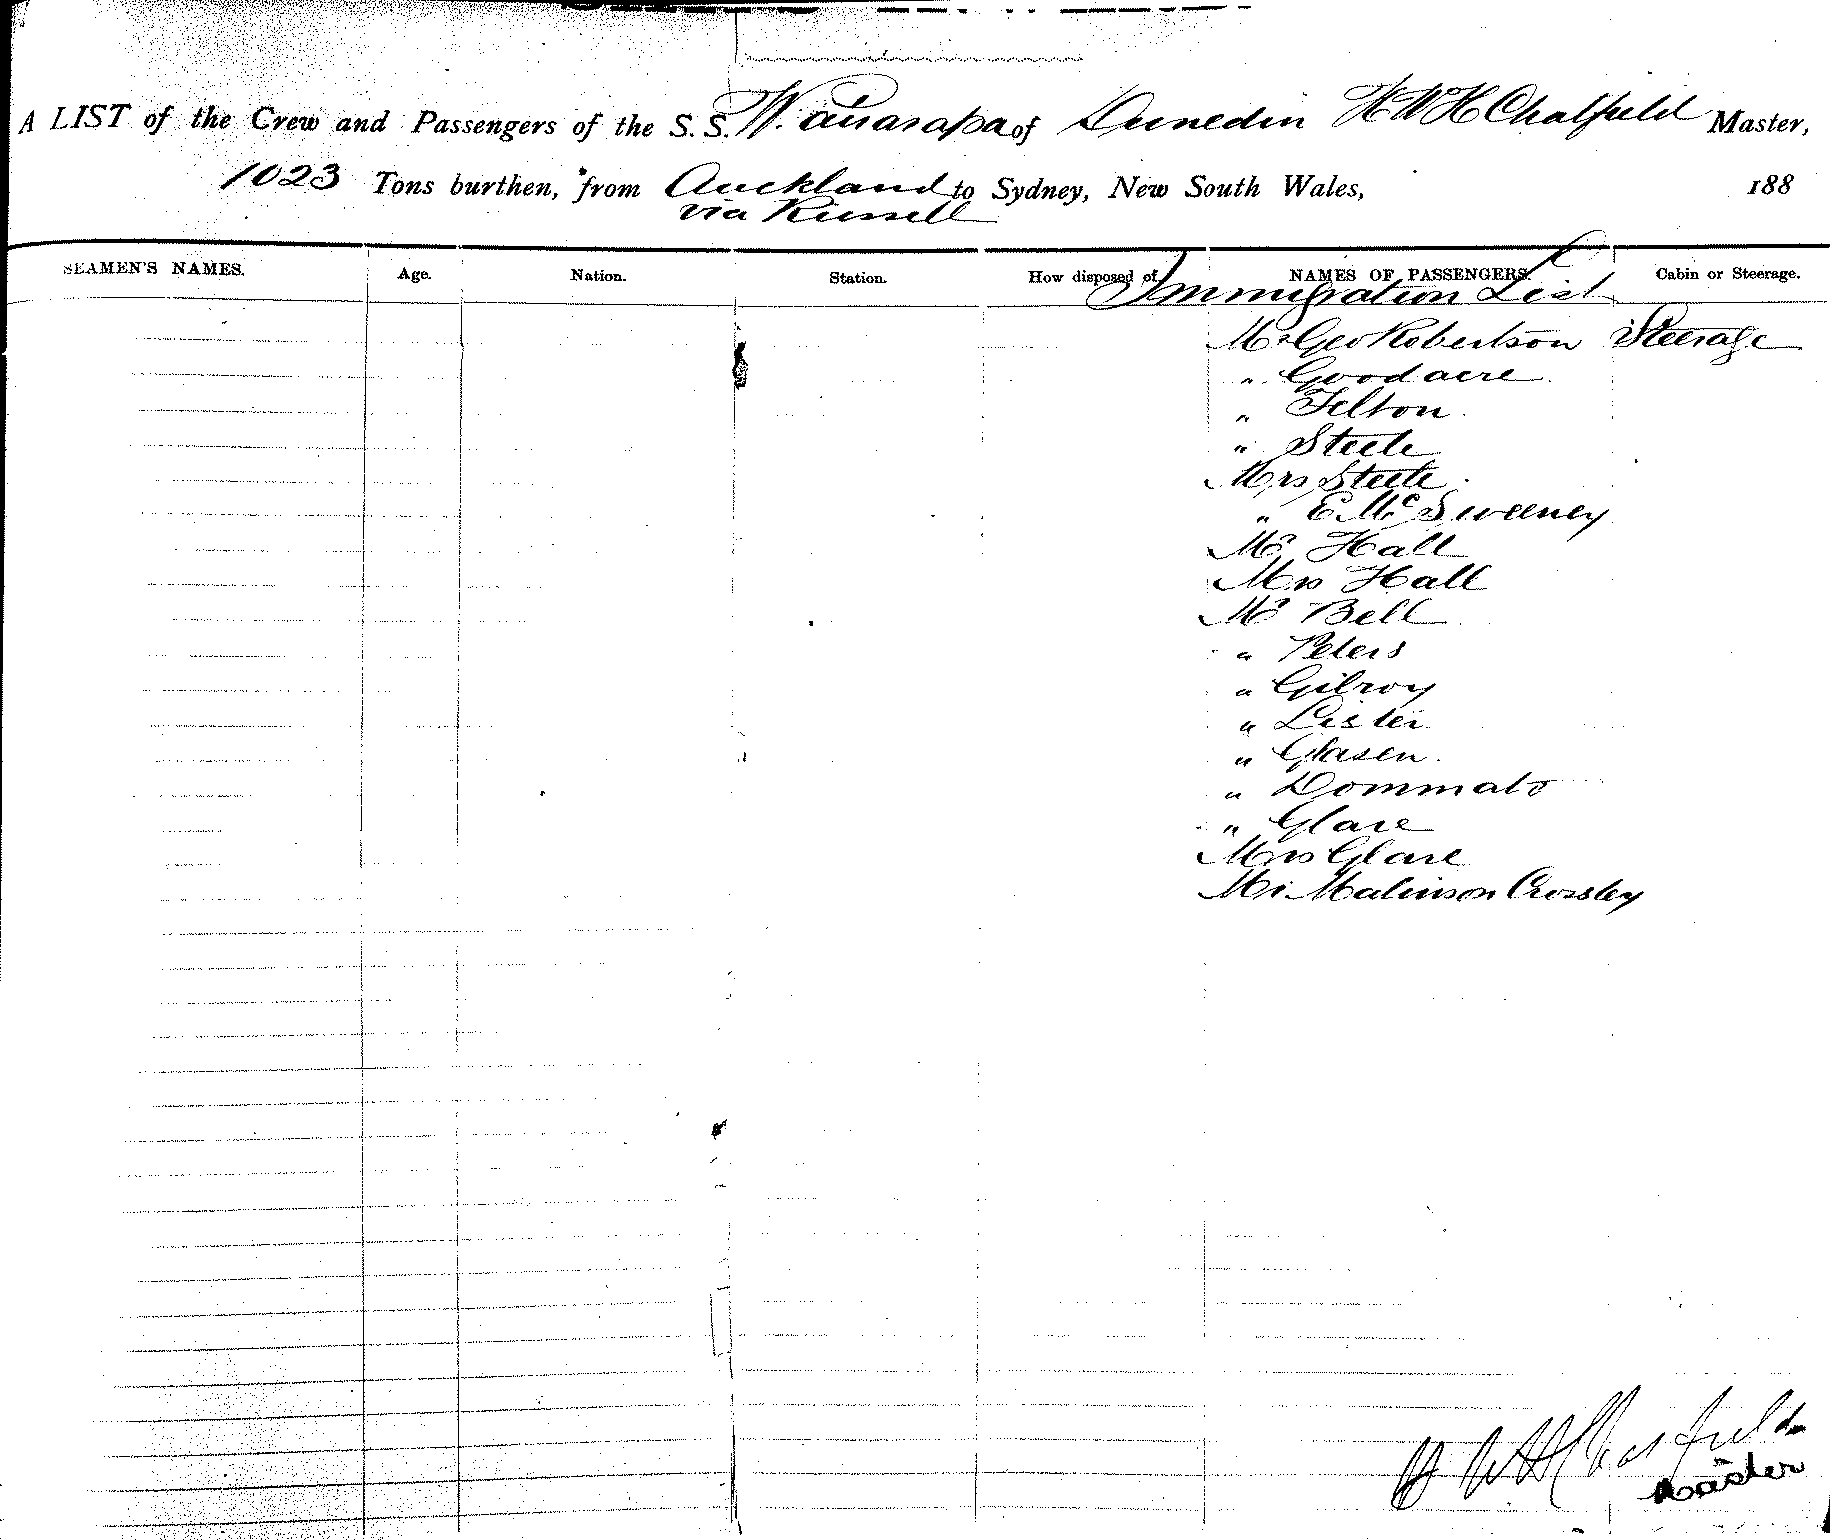 A LIST of the Crew and Passengers of the S. S. Wairarapa of Dunedin H W H Chatfield Master,
1023 Tons burthen, from Auckland to Sydney, New South Wales, 188
via Russell
SEAMEN'S NAMES. Age. Nation. Station. How disposed of NAMES OF PASSENGERS. Cabin or Steerage.
Immigration List
Mr Geo Robertson Steerage
" Goodacre
" Felton
" Steele
Mrs Steele
" E. Mc Sweeney
Mr Hall
Mrs Hall
Mr Bell
" Peters
" Gilroy
" Lister
" Glasen
" Dommato
" Glare
Mrs Glare
Mr Malinson Crossley
H W H Chatfield
Master